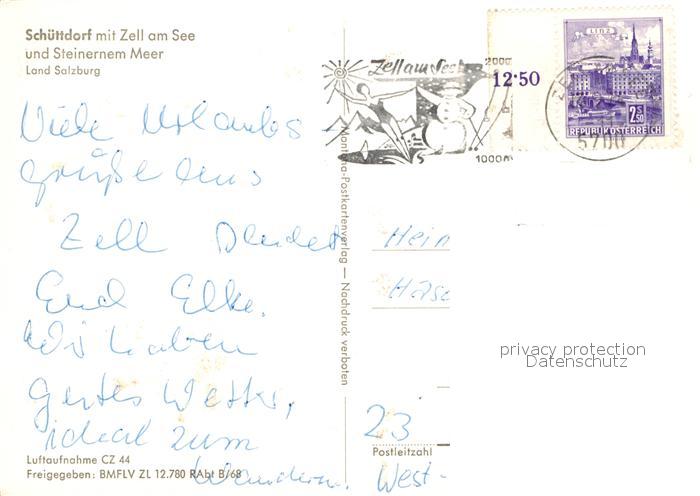 Schüttdorf mit Zell am See
und Steinernem Meer
Land Salzburg
Viele Urlaubs
grüße aus
Zell sendet
Euch Elke.
Wir haben
gutes Wetter,
ideal zum
Wandern.
Luftaufnahme CZ 44
Freigegeben: BMFLV ZL 12.780 RAbt B/68
Montana-Postkartenverlag — Nachdruck verboten
Zell am See
2000
1000 m
12·50
LINZ
2 S 50
REPUBLIK ÖSTERREICH
5700
Hein
Hase
privacy protection
Datenschutz
23
Postleitzahl
West-